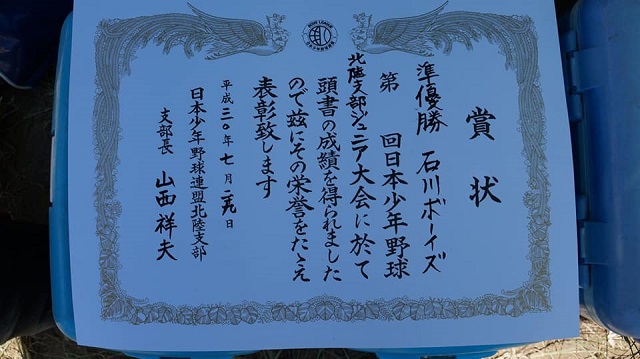 賞状
準優勝 石川ボーイズ
第 回日本少年野球
北陸支部ジュニア大会に於て
頭書の成績を得られました
ので茲にその栄誉をたゝえ
表彰致します
平成三〇年七月二九日
日本少年野球連盟北陸支部
支部長 山西祥夫